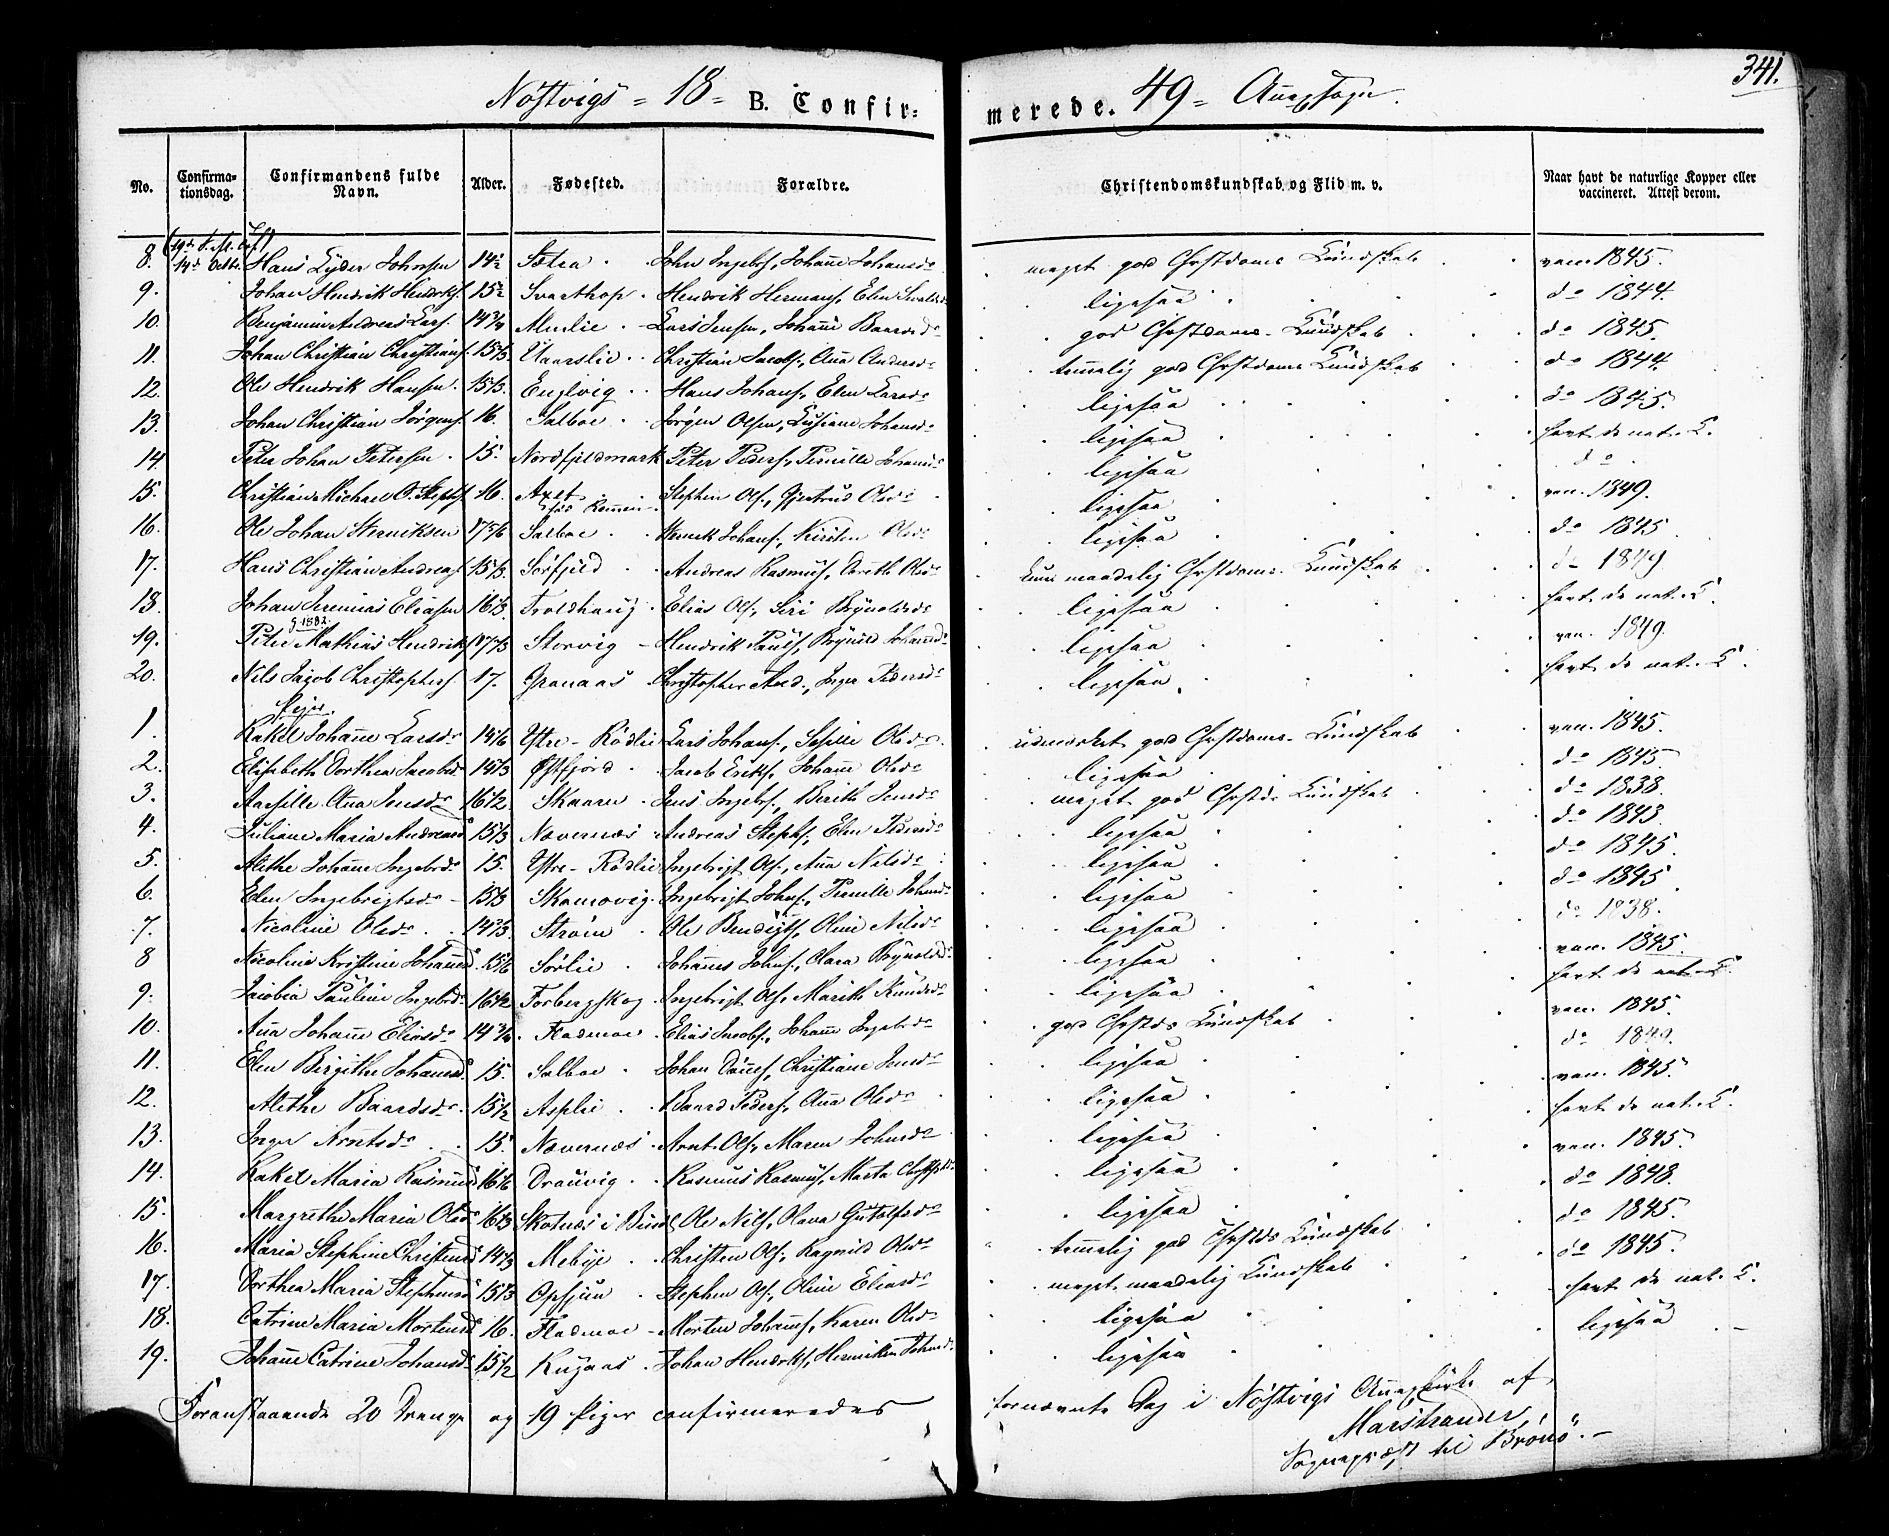 341.
Nöstvigs = 18 = B. Confir= merede. 49 = Annexsogn.
No. Confirma-tionsdag. Confirmandens fulde Navn. Alder. Fødested. Forældre. Christendomskundskab og Flid m. v. Naar havt de naturlige Kopper eller vaccineret. Attest derom.
8. 14d Octbr. Hans Lyder Johnsen 14½ Sætra John Ingebs, Johane Johansdr meget god Chrstdoms Kundskab vac. 1845.
9. Johan Hendrik Hendrks. 15½ Svarthop Hendrik Hermans, Elen ligesaa do 1844.
10. Benjamin Andreas Lars. 14¾ Almlie Lars Jensen, Johane Baardsdr god Chrstdoms Kundskab do 1845.
11. Johan Christian Christians. 15⅓ Christian Jacobs, Ana Andersdr temelig god Chrstdoms Kundskab do 1844.
12. Ole Hendrik Hansen 15⅓ Englvig Hans Johans, Elen Larsdr ligesaa do 1845.
13. Johan Christian Jörgens. 16. Salboe Jörgen Olsen, Lusiane Johansdr ligesaa havt de nat. K.
14 Peter Johan Petersen 15. Nordfjeldmark Peter Peders, Pernille Johansdr ligesaa do
15. Christian Michael O. Steph 16. Axet Stephen Ols, Gjertrud Olsdr ligesaa vac. 1849.
16. Ole Johan Henriksen 17 5/6 Salboe Henrik Johans, Kirsten Olsdr ligesaa do 1845
17. Hans Christian Andreas 15⅓ Sörfjeld Andreas Rasmus, Dorith Olsdr kun maadelig Chrstdoms Kundskab do 1849
18. Johan Jeremias Eliasen 16⅔ Troldhaug Elias Ols, Siri Bynoldsdr ligesaa havt de nat. K.
19. Peter Mathias Hendriks 17⅓ Storvig Hendrik Pauls, Bynild Johansdr ligesaa vac. 1849.
20. Nils Jacob Christophers 17. Granaas Christopher And., Inger Pedersdr ligesaa havt de nat. K.
Piger.
1. Rakel Johane Larsdr 14 1/6 Ytre-Rödlie Lars Johans, Sesille Olsdr udmerket god Chrstdoms Kundskab vac. 1845.
2. Elisabeth Dorthea Jacobsd 14⅔ Østfjord Jacob Eriks, Johane Olsdr ligesaa do 1845
3. Aasille Ana Jensdr 16½ Skaarn Jens Ingebs, Berith Jensdr meget god Chrstds Kundskab do 1838.
4. Juliane Maria Andreasd 15⅓ Nævernæs Andreas Stephs, Elen Pedersdr ligesaa do 1843.
5. Alethe Johane Ingebrdr 15. Ytre-Rödlie Ingebrigt Ols, Ana Nilsdr ligesaa do 1845.
6. Elen Ingebrigtsdr 15⅓ Skomovig Ingebrigt Johns, Pernille Johnsdr ligesaa do 1845
7. Nicoline Olsdr 14⅔ Ström Ole Bendigts, Oline Nilsdr ligesaa do 1838.
8 Nicoline Kristine Johansd 15 1/6 Sörlie Johans Johns, Clara Bynoldsdr ligesaa vac. 1845.
9. Jacobia Pauline Ingebrdr 16½ Forbergskog Ingebrigt Ols, Marith Knudsdr ligesaa havt de nat. K.
10. Ana Johane Eliasdr 14¾ Fladmoe Elias Jacobs, Johane Ingebrdr god Chrstds Kundskab vac. 1845.
11. Elen Birgithe Johansd 15. Salboe Johan Daniels, Christiane Jensdr ligesaa do 1849.
12. Alethe Baardsdr 15½ Asplie Baard Peders, Ana Olsdr ligesaa vac. 1845.
13. Inger Arntsdr 15. Nævernæs Arnt Ols, Maren Johnsdr ligesaa havt de nat. K.
14. Rakel Maria Rasmusd 16 1/6 Drauvig Rasmus Rasmus, Marta ligesaa vac. 1845.
15. Margrethe Maria Olsd 16⅔ Skotnæs i Bind. Ole Nils, Olava Gutolfsdr ligesaa do 1848.
16. Maria Stephine Christensd 14⅔ Mebye Christen Ols, Ragnild Olsdr temelig god Chrstds Kundskab do 1845.
17. Dorthea Maria Stephensd 15⅓ Opsjun Stephen Ols, Oline Eliasdr meget maadelig Kundskab do 1845.
18. Catrine Maria Mortensd 16. Fladmoe Morten Johans, Karen Olsdr ligesaa havt de nat. K.
19. Johane Catrine Johansdr 15½ Johan Hendriks, Henrikke Johnsdr ligesaa ligesaa
Foranstaaende 20 Drenge og 19 Piger confirmeredes fornævnte Dag i Nöstvigs Annexkirke af
Marstrander
Sognepræst til Brönö.